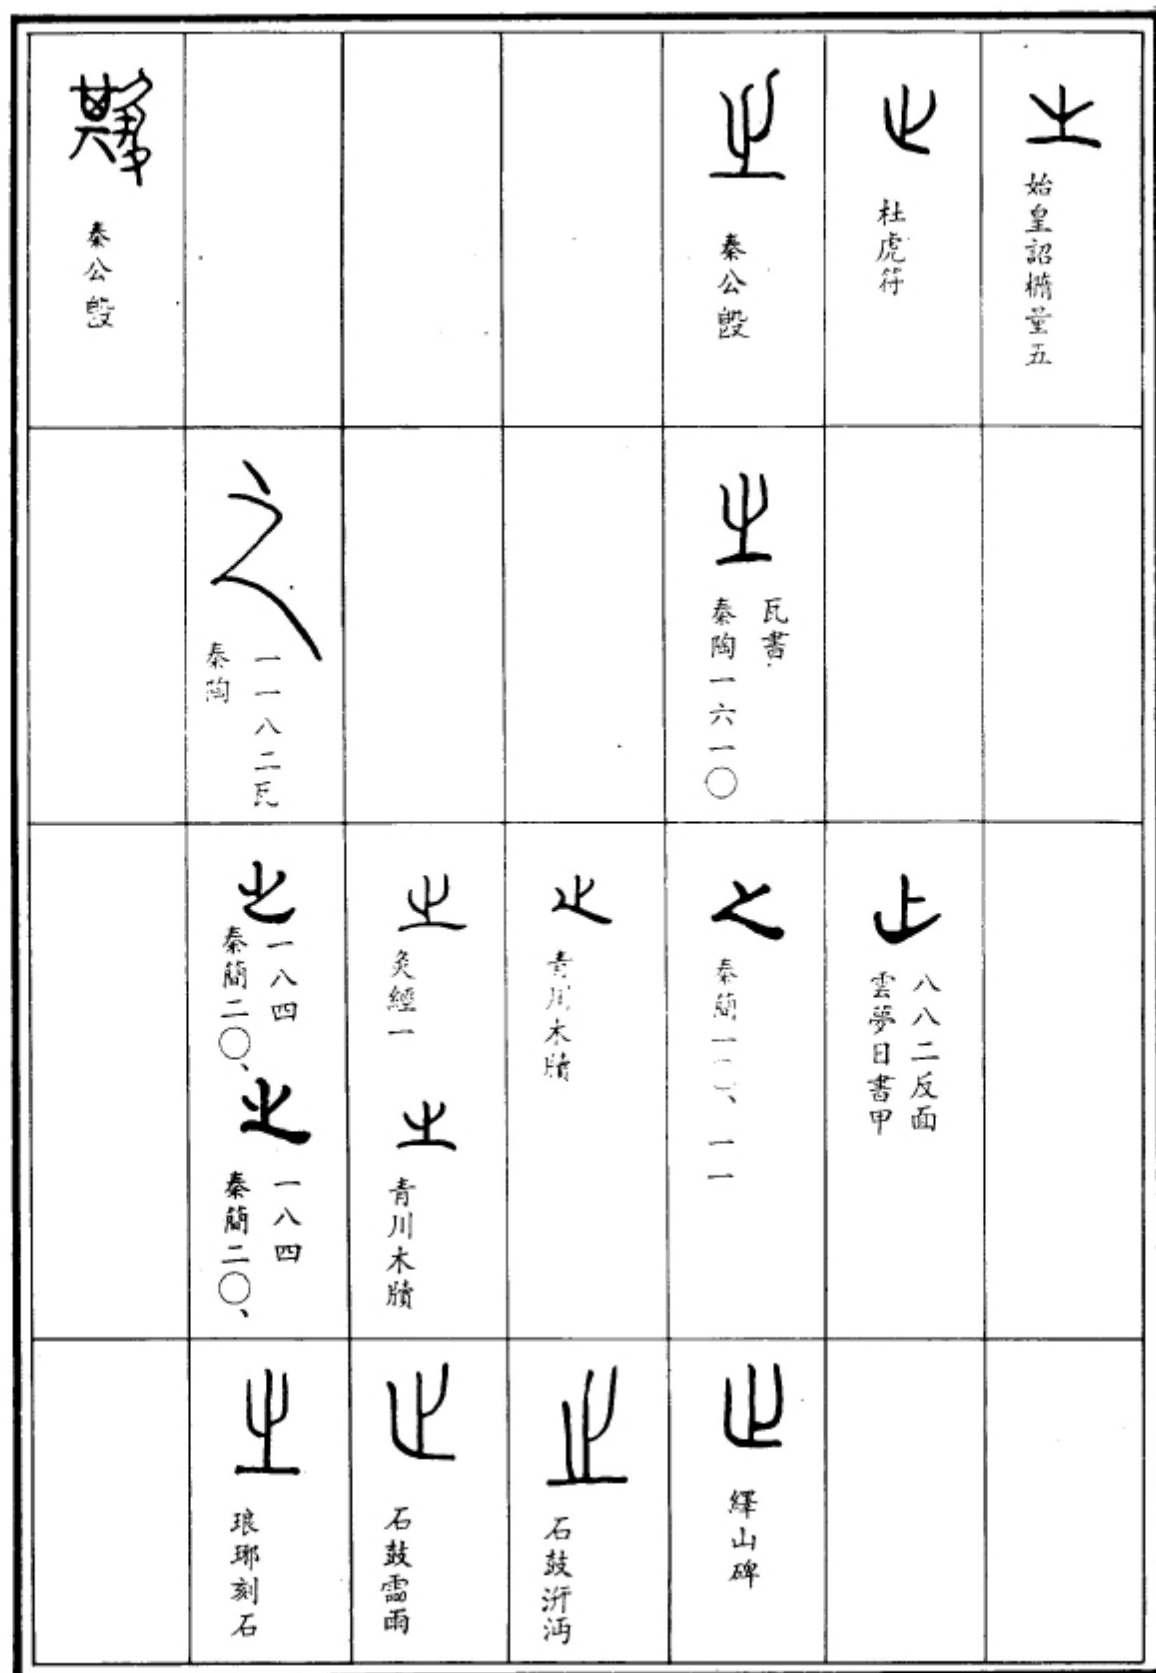 始皇詔橢量五
杜虎符
秦公𣪘
秦公𣪘
瓦書
秦陶一六一〇
一一八二瓦
秦陶
八八二反面
雲夢日書甲
青川木牘
灸經一
青川木牘
一八四
秦簡二〇、
一八四
秦簡二〇、
繹山碑
石鼓汧沔
石鼓霝雨
琅琊刻石